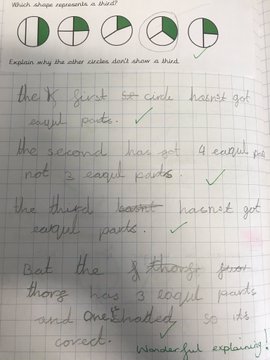 Which shape represents a third?
Explain why the other circles don't show a third.
the first circle hasn't got
eaqul parts.
the second has got 4 eaqul
not 3 eaqul parts.
the third hasn't got
eaqul parts.
But the
has 3 eaqul parts
and one shatted so it's
corect.
Wonderful explaining!